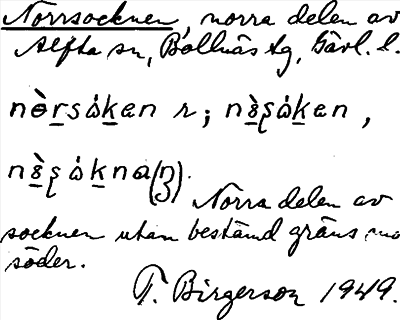 Norrsocknen, norra delen av
Alfta sn, Bollnäs tg, Gävl. l.
nɵ̀rsȧken r; nɵ̀ʂȧken,
nɵ̀ʂȧkna(ɳ).
Norra delen av
socknen utan bestämd gräns mo
söder.
T. Birgerson 1949.